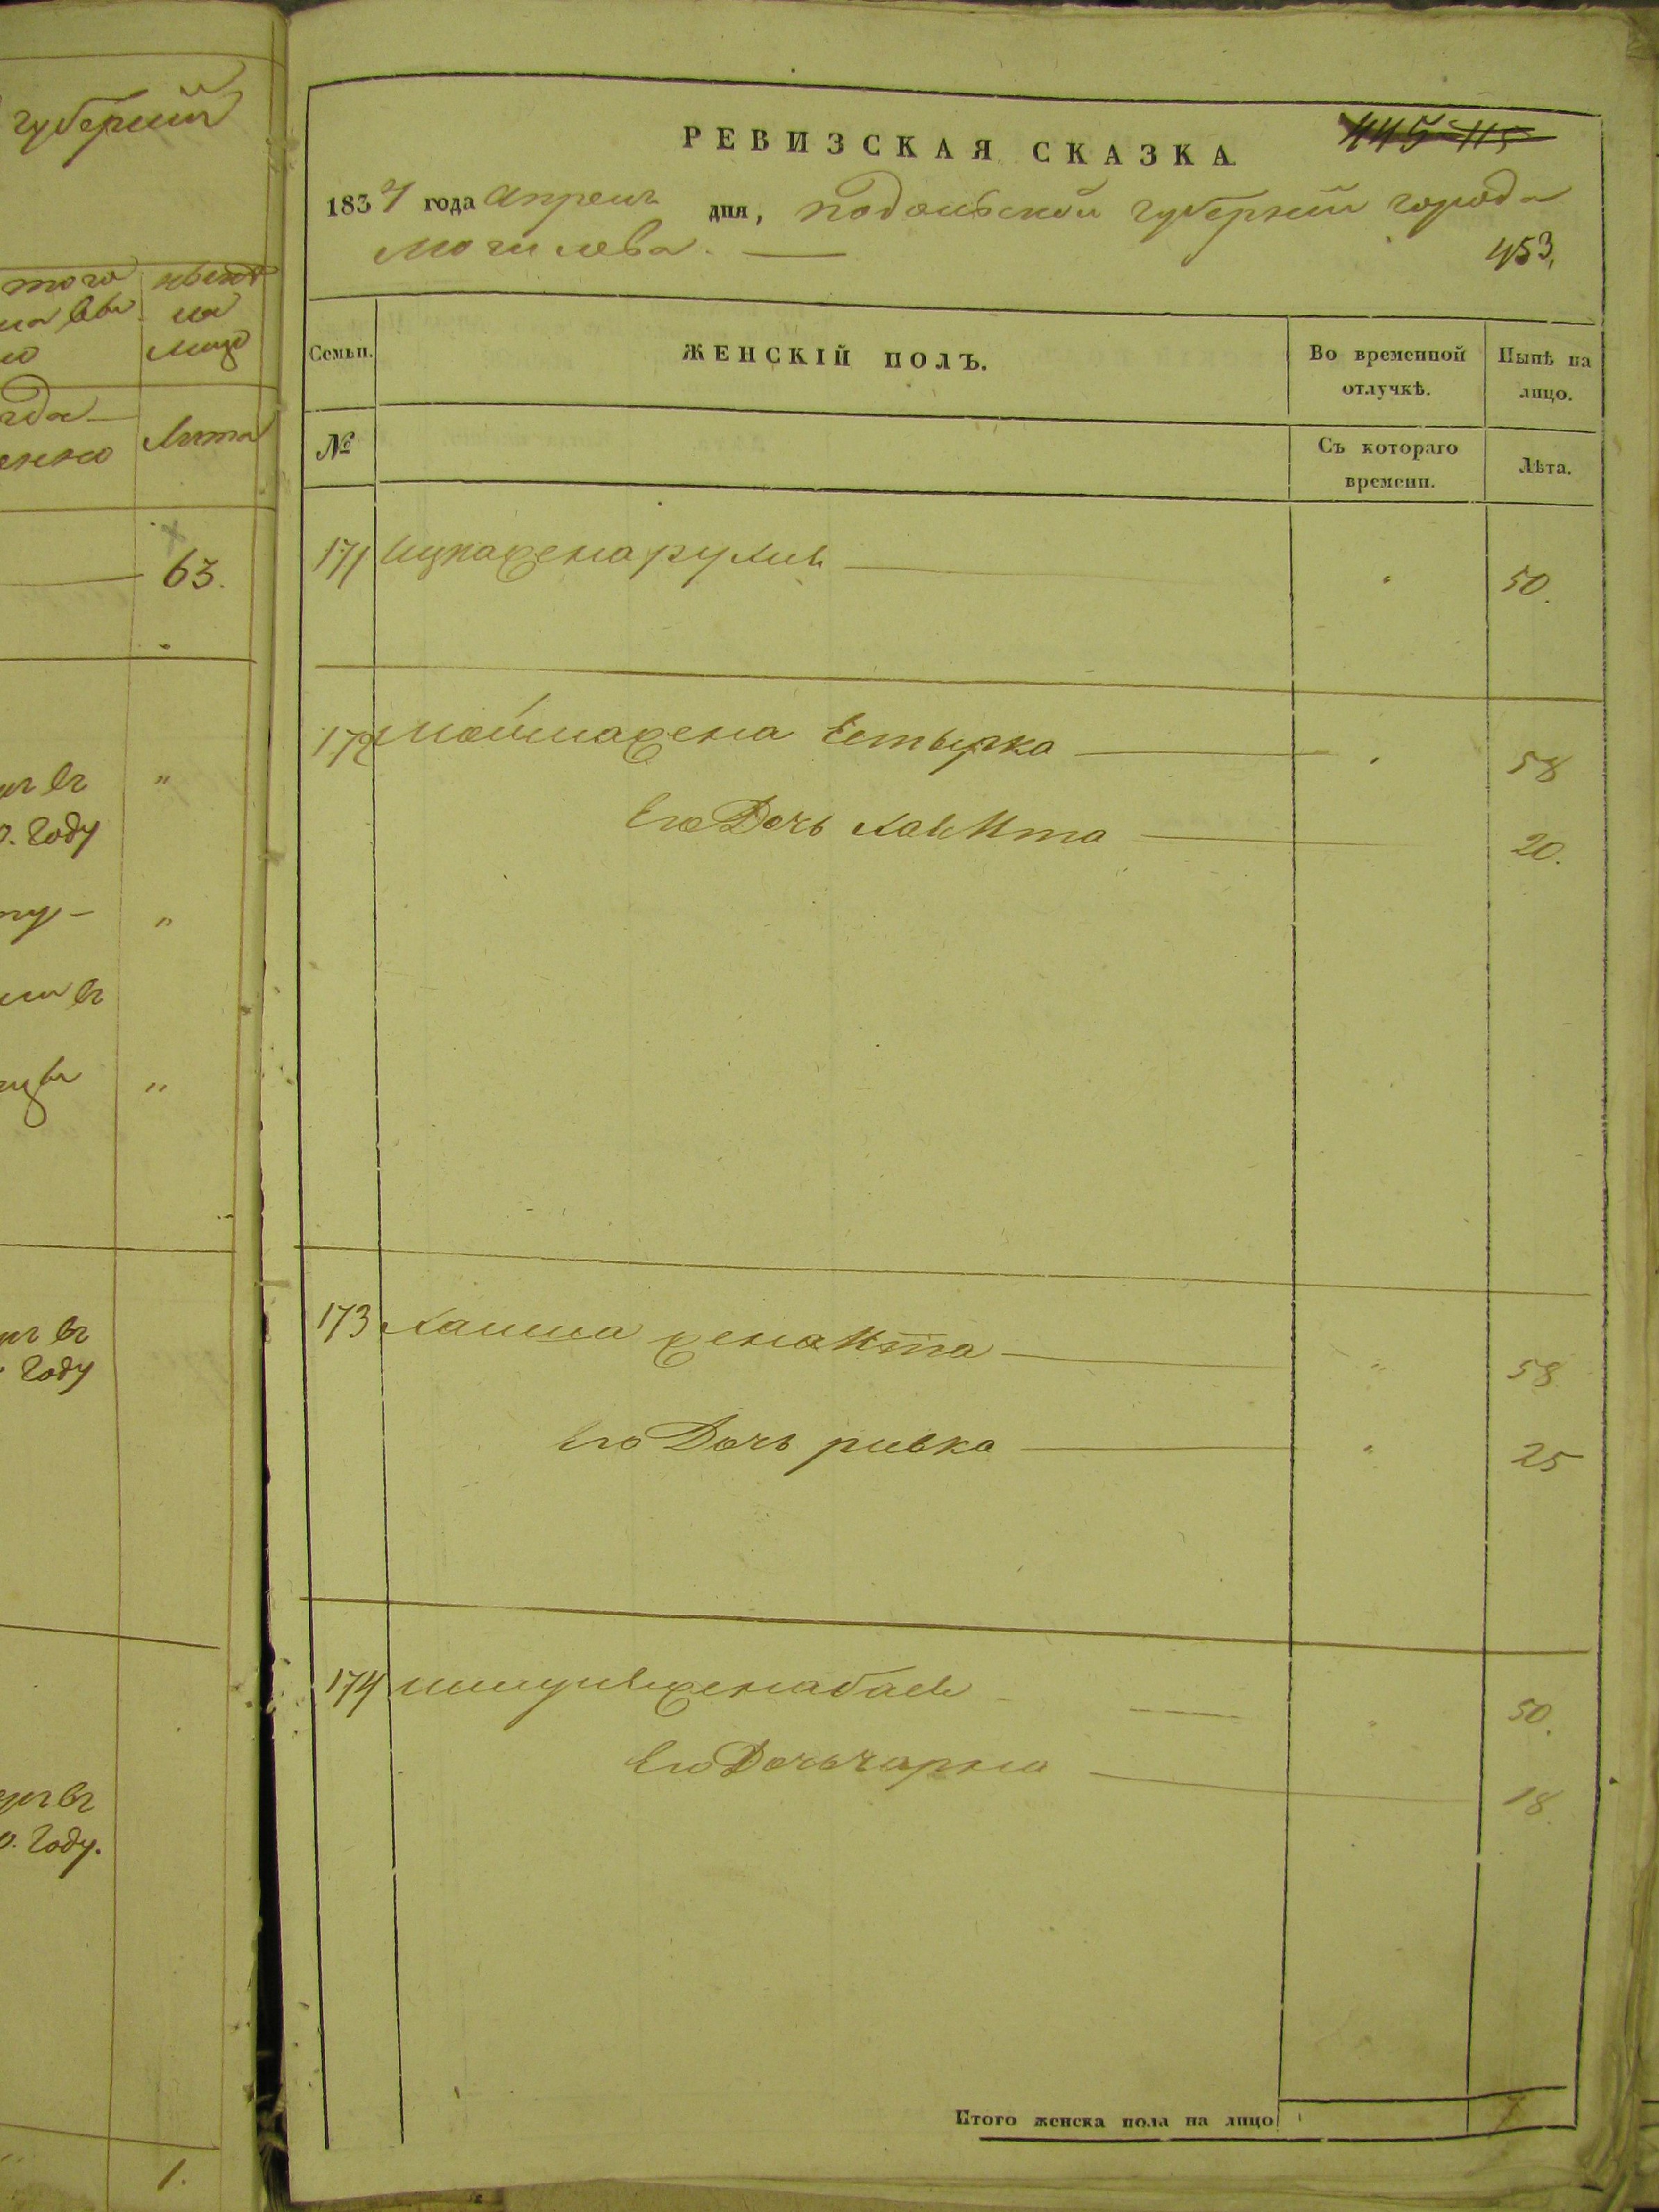 губерний
того
нынѣ
на
лицо
Лѣта
63.
въ "
Году
"
въ
"
въ
Году
въ
Году.
1.
РЕВИЗСКАЯ СКАЗКА
445 115
1834 года апреля дня, подольской губернии города
могилева.
453.
Семьи. ЖЕНСКІЙ ПОЛЪ. Во временной отлучкѣ. Нынѣ на лицо.
№ Съ котораго времени. Лѣта.
171 Ицка жена рухля 50.
172 Мошка жена Естырка 58
Его Дочь хая Ита 20.
173 Хаима жена Ита " 58
Его Дочь ривка " 25
174 жена бася " 50.
Его Дочь чарна 18
Итого женска пола на лицо 7